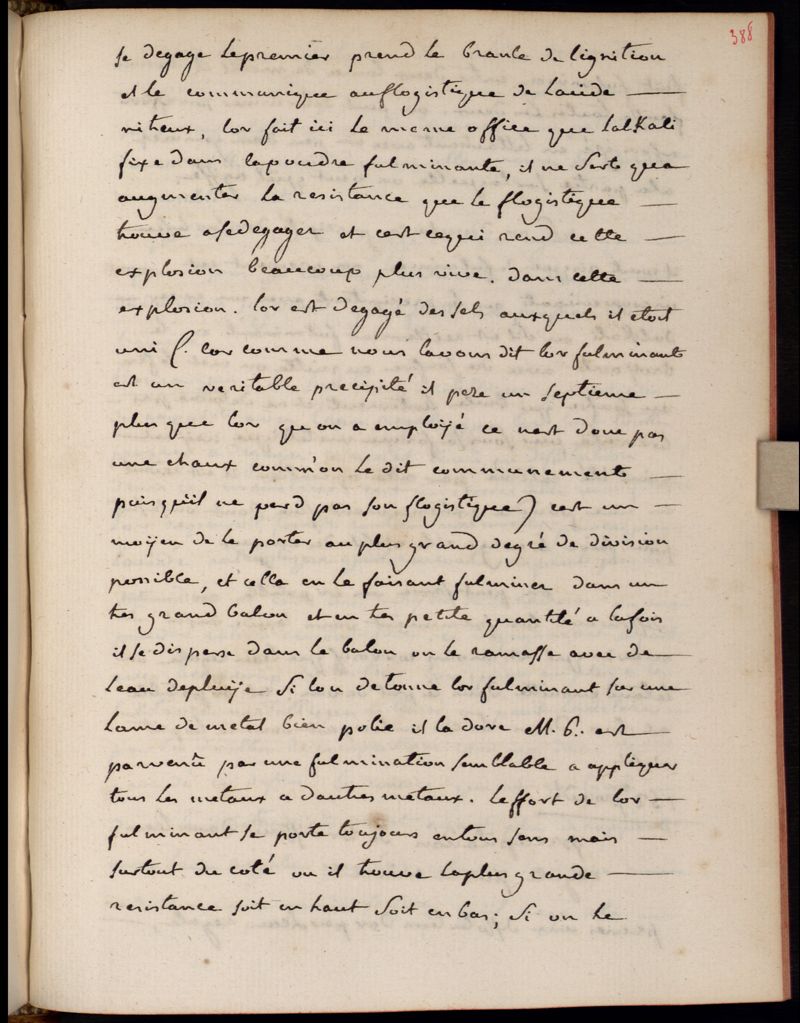 388
se degage lepremier prend le branle de lignition
et le communique auflogistique de lacide —
nitreux, lor fait ici le meme office que lalKali
fixe dans lapoudre fulminante, il ne sert qua
augmenter la resistance que le flogistique —
trouve asedegager et cest cequi rend cette —
explosion beaucoup plus vive. dans cette —
explosion. lor est degagé des sels auxquels il etoit
uni (. car comme nous lavons dit lor fulminant
est un veritable precipité il pese un septieme —
plus que lor quon a emploijé ce nest donc pas
une chaux comm'on le dit communement —
puisqu'il ne perd pas son flogistique) cest un —
moijen de le porter auplus grand degré de division
possible, et cella en le faisant fulminer dans un
tres grand balon et en tres petite quantité a lafois
il se disperse dans le balon on le ramasse avec de
leau depluije Si lon detonne lor fulminant sur une
lame de metal bien polie il la dore M. B. est —
parvenu par une fulmination semblable a appliquer
tous les metaux a dautres metaux. Leffort de lor —
fulminant se porte toujours entous sens mais —
surtout du coté ou il trouve laplus grande —
resistance soit en haut soit en bas; Si on le